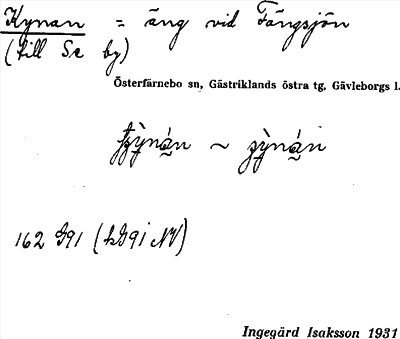 Kynan = äng vid Fängsjön
(till Se by)
Österfärnebo sn, Gästriklands östra tg, Gävleborgs l.
162 G91 (hG91 NV)
Ingegärd Isaksson 1931